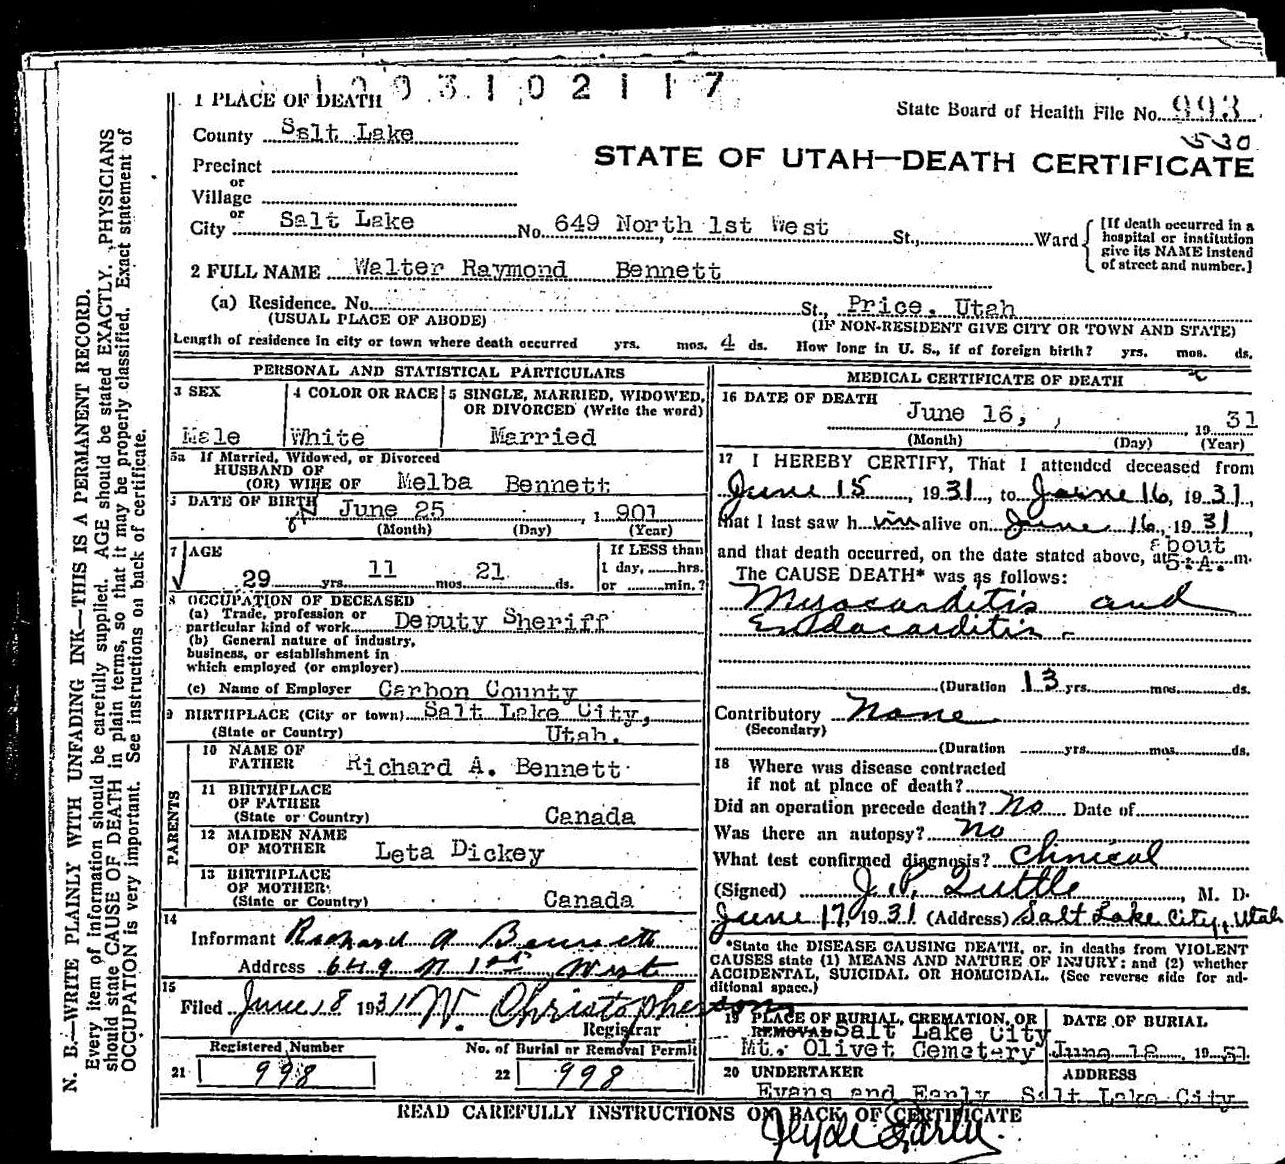 1 0 0 3 1 0 2 1 1 7
1 PLACE OF DEATH
State Board of Health File No. 993
530
County Salt Lake
STATE OF UTAH—DEATH CERTIFICATE
Precinct
or
Village
or
City Salt Lake No. 649 North 1st West St., Ward [If death occurred in a hospital or institution give its NAME instead of street and number.]
2 FULL NAME Walter Raymond Bennett
(a) Residence. No. St., Price, Utah
(USUAL PLACE OF ABODE) (IF NON-RESIDENT GIVE CITY OR TOWN AND STATE)
Length of residence in city or town where death occurred yrs. mos. 4 ds. How long in U. S., if of foreign birth? yrs. mos. ds.
PERSONAL AND STATISTICAL PARTICULARS
3 SEX 4 COLOR OR RACE 5 SINGLE, MARRIED, WIDOWED, OR DIVORCED (Write the word)
Male White Married
5a If Married, Widowed, or Divorced
HUSBAND OF
(OR) WIFE OF Melba Bennett
6 DATE OF BIRTH June 25 , 1901
(Month) (Day) (Year)
7 AGE If LESS than
29 yrs. 11 mos. 21 ds. 1 day, hrs.
or min.?
8 OCCUPATION OF DECEASED
(a) Trade, profession or
particular kind of work Deputy Sheriff
(b) General nature of industry,
business, or establishment in
which employed (or employer)
(c) Name of Employer Carbon County
9 BIRTHPLACE (City or town) Salt Lake City,
(State or Country) Utah.
PARENTS
10 NAME OF
FATHER Richard A. Bennett
11 BIRTHPLACE
OF FATHER
(State or Country) Canada
12 MAIDEN NAME
OF MOTHER Leta Dickey
13 BIRTHPLACE
OF MOTHER
(State or Country) Canada
14
Informant Richard A Bennett
Address 649 N 1st West
15
Filed June 18 1931 W. Christopherson
Registrar
Registered Number No. of Burial or Removal Permit
21 998 22 998
MEDICAL CERTIFICATE OF DEATH
16 DATE OF DEATH
June 16, , 1931
(Month) (Day) (Year)
17 I HEREBY CERTIFY, That I attended deceased from
June 15, 1931, to June 16, 1931,
that I last saw him alive on June 16, 1931,
and that death occurred, on the date stated above, at about 5:A. m.
The CAUSE DEATH* was as follows:
Myocarditis and
Endocarditis -
(Duration 13 yrs. mos. ds.
Contributory None
(Secondary)
(Duration yrs. mos. ds.
18 Where was disease contracted
if not at place of death?
Did an operation precede death? No Date of
Was there an autopsy? no
What test confirmed diagnosis? Clinical
(Signed) J. P. Tuttle, M. D.
June 17, 1931 (Address) Salt Lake City, Utah
*State the DISEASE CAUSING DEATH, or, in deaths from VIOLENT
CAUSES state (1) MEANS AND NATURE OF INJURY; and (2) whether
ACCIDENTAL, SUICIDAL OR HOMICIDAL. (See reverse side for ad-
ditional space.)
19 PLACE OF BURIAL, CREMATION, OR DATE OF BURIAL
REMOVAL Salt Lake City
Mt. Olivet Cemetery June 18, 1931
20 UNDERTAKER ADDRESS
Evans and Early Salt Lake City
READ CAREFULLY INSTRUCTIONS ON BACK OF CERTIFICATE
Clyde Early.
N. B.—WRITE PLAINLY WITH UNFADING INK—THIS IS A PERMANENT RECORD.
Every item of information should be carefully supplied. AGE should be stated EXACTLY. PHYSICIANS
should state CAUSE OF DEATH in plain terms, so that it may be properly classified. Exact statement of
OCCUPATION is very important. See instructions on back of certificate.